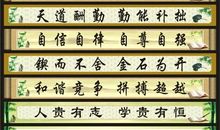 天道酬勤 勤能补拙
自信自律 自尊自强
锲而不舍 金石为开
和谐竞争 拼搏超越
人贵有志 学贵有恒